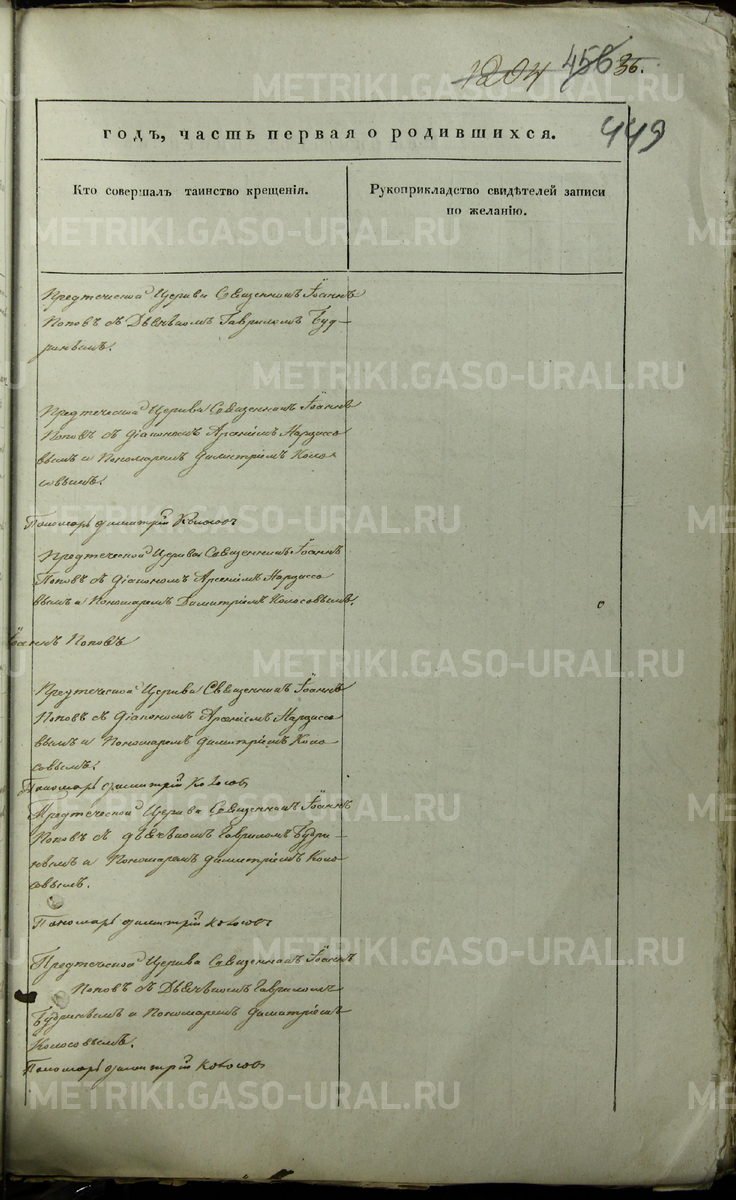 1204 456 36.
449
годъ, часть первая о родившихся.
Кто совершалъ таинство крещенія.
Рукоприкладство свидѣтелей записи
по желанію.
Предтеческой Церкви Священникъ Іоаннъ
Поповъ съ Дьячкомъ Гавриломъ Будринымъ.
Предтеческой Церкви Священникъ Іоаннъ
Поповъ съ Діакономъ Арсеніемъ Нардиссо
вымъ и Пономаремъ Димитріемъ Коло
совымъ.
Пономарь Димитрій Колосовъ
Предтеческой Церкви Священникъ Іоаннъ
Поповъ съ Діакономъ Арсеніемъ Нардиссо
вымъ и Пономаремъ Димитріемъ Колосовымъ.
Іоаннъ Поповъ
Предтеческой Церкви Священникъ Іоаннъ
Поповъ съ Діакономъ Арсеніемъ Нардиссо
вымъ и Пономаремъ Димитріемъ Коло
совымъ.
Пономарь Димитрій Колосовъ
Предтеческой Церкви Священникъ Іоаннъ
Поповъ съ Дьячкомъ Гавриломъ Будри-
нымъ и Пономаремъ Димитріемъ Коло
совымъ.
Пономарь Димитрій Колосовъ
Предтеческой Церкви Священникъ Іоаннъ
Поповъ съ Дьячкомъ Гавриломъ
Будринымъ и Пономаремъ Димитріемъ
Колосовымъ.
Пономарь Димитрій Колосовъ
METRIKI.GASO-URAL.RU